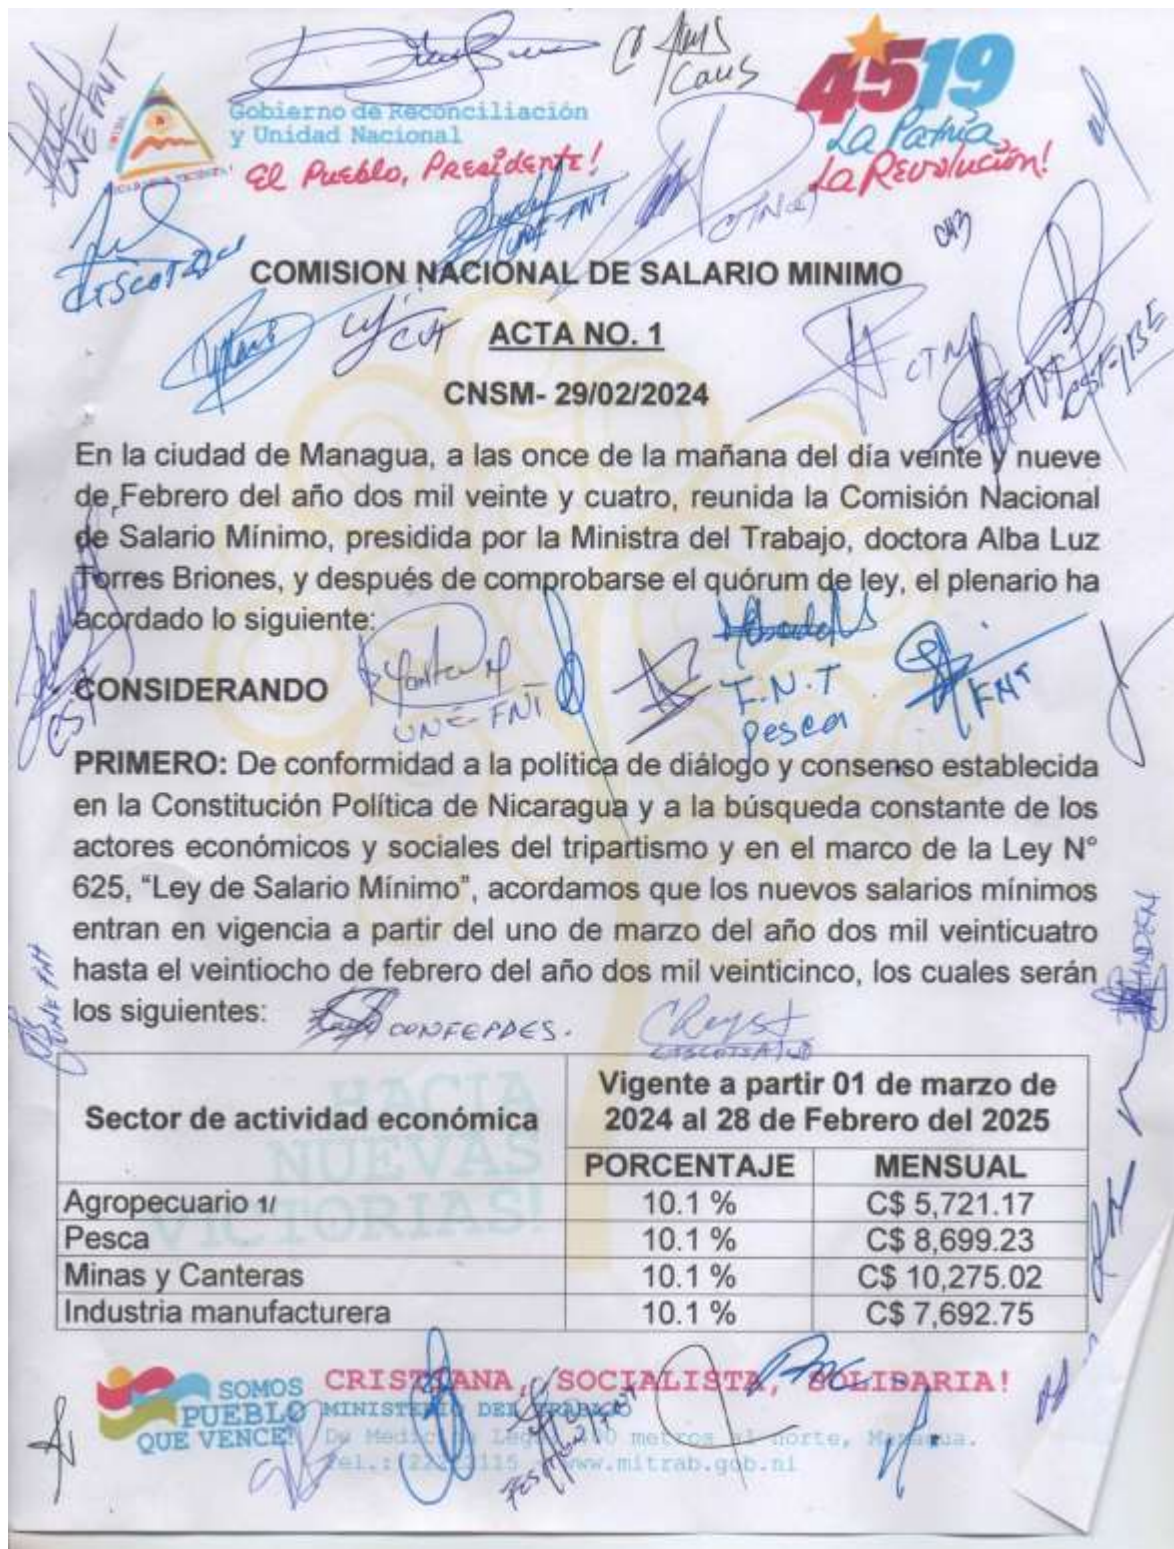 Gobierno de Reconciliación
y Unidad Nacional
El Pueblo, Presidente!
4519
La Patria,
La Revolución!
UNE-FNT
Caus
UNE-FNT
COMISION NACIONAL DE SALARIO MINIMO
CUT
ACTA NO. 1
CTN
CNSM- 29/02/2024
En la ciudad de Managua, a las once de la mañana del día veinte y nueve
de Febrero del año dos mil veinte y cuatro, reunida la Comisión Nacional
de Salario Mínimo, presidida por la Ministra del Trabajo, doctora Alba Luz
Torres Briones, y después de comprobarse el quórum de ley, el plenario ha
acordado lo siguiente:
CONSIDERANDO
CST
UNE-FNT
F.N.T
Pesca
FNT
PRIMERO: De conformidad a la política de diálogo y consenso establecida
en la Constitución Política de Nicaragua y a la búsqueda constante de los
actores económicos y sociales del tripartismo y en el marco de la Ley N°
625, “Ley de Salario Mínimo”, acordamos que los nuevos salarios mínimos
entran en vigencia a partir del uno de marzo del año dos mil veinticuatro
hasta el veintiocho de febrero del año dos mil veinticinco, los cuales serán
los siguientes:
CONFEPDES.
Sector de actividad económica
Vigente a partir 01 de marzo de
2024 al 28 de Febrero del 2025
PORCENTAJE MENSUAL
Agropecuario 1/ 10.1 % C$ 5,721.17
Pesca 10.1 % C$ 8,699.23
Minas y Canteras 10.1 % C$ 10,275.02
Industria manufacturera 10.1 % C$ 7,692.75
HACIA
NUEVAS
VICTORIAS!
SOMOS
PUEBLO
QUE VENCE!
CRISTIANA, SOCIALISTA, SOLIDARIA!
MINISTERIO DEL TRABAJO
De Medicina Legal, metros al norte, Managua.
Tel.: www.mitrab.gob.ni